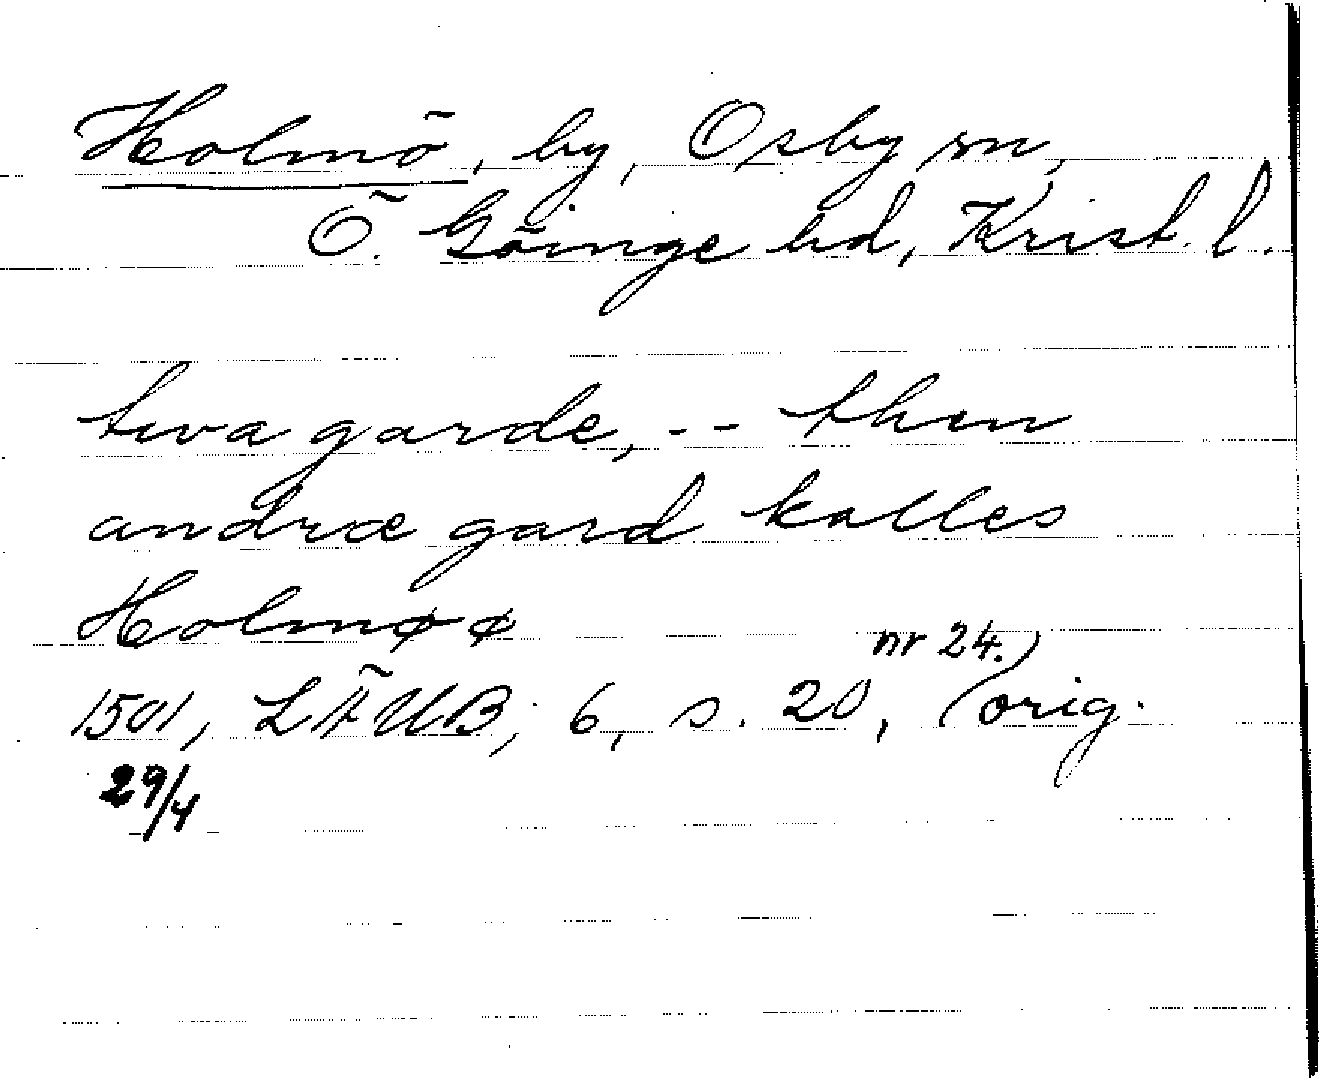 Holmö, by, Osby sn,
Ö. Göinge hd, Krist. l.
twa garde, -- then
andræ gard kalles
Holmøø
nr 24.)
1501, LÄUB, 6, s. 20, (orig.
29/4